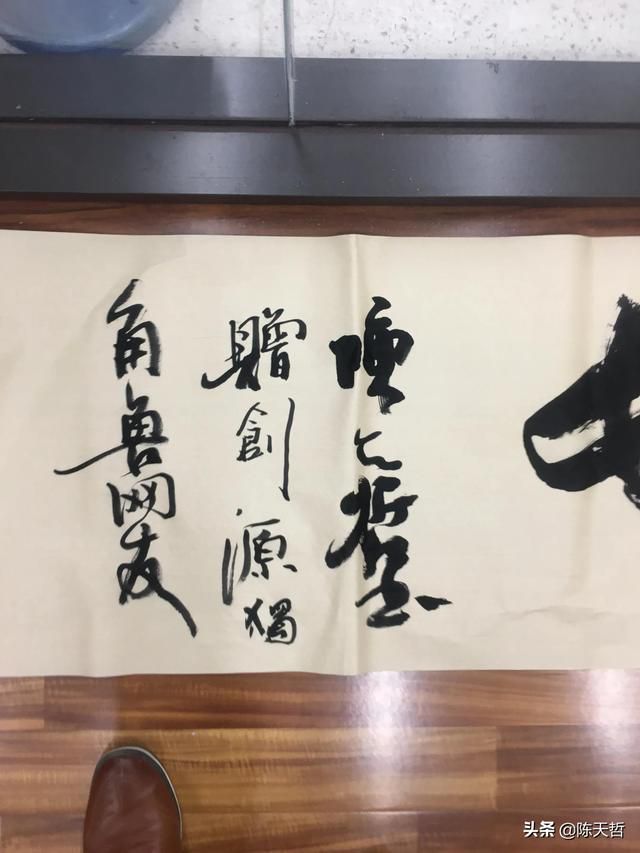 陳天哲書
贈創源獨
角兽网友
头条 @陈天哲